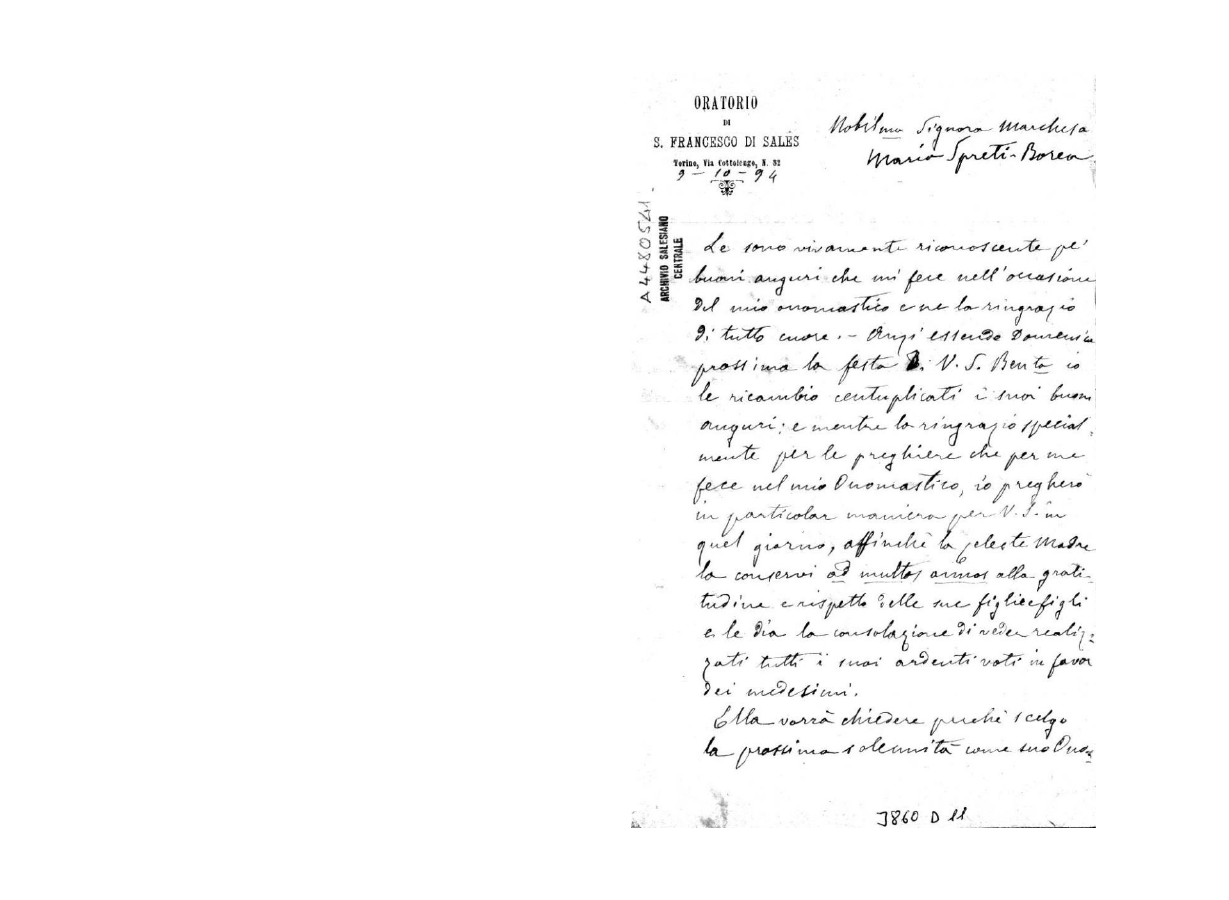 ORATORIO
DI
S. FRANCESCO DI SALES
Torino, Via Cottolengo, N. 32
9 - 10 - 94
Nobilma Signora Marchesa
Maria Spreti-Borea
A4480541
ARCHIVIO SALESIANO
CENTRALE
Le sono vivamente riconoscente pe'
buoni auguri che mi fece nell'occasione
del mio onomastico e ne la ringrazio
di tutto cuore. - Anzi essendo Domenica
prossima la festa di V. S. Benta io
le ricambio centuplicati i suoi buoni
auguri; e mentre la ringrazio special-
mente per le preghiere che per me
fece nel mio Onomastico, io pregherò
in particolar maniera per V. S. in
quel giorno, affinchè la celeste Madre
la conservi ad multos annos alla grati-
tudine e rispetto delle sue figlie e figli
e le dia la consolazione di veder realiz-
zati tutti i suoi ardenti voti in favor
dei medesimi.
Ella vorrà chiedere perchè scelgo
la prossima solennità come suo Ono-
3860 D 11